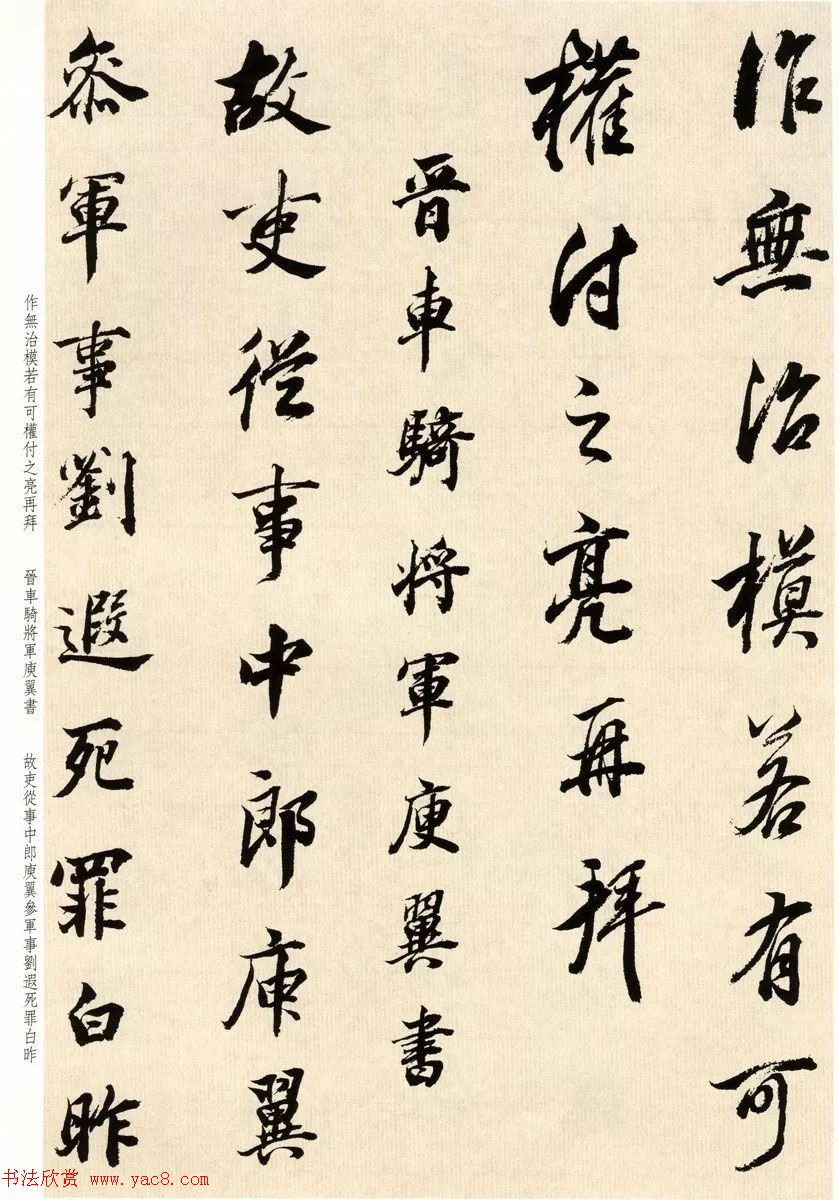 作無治模若有可
權付之亮再拜
晉車騎將軍庾翼書
故吏從事中郎庾翼
參軍事劉遐死罪白昨
作無治模若有可權付之亮再拜 晉車騎將軍庾翼書 故吏從事中郎庾翼參軍事劉遐死罪白昨
书法欣赏 www.yac8.com